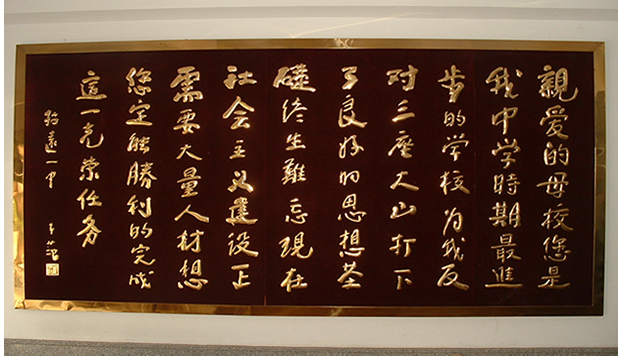 親愛的母校您是
我中学時期最進
步的学校为我反
对三座大山打下
了良好的思想基
礎终生難忘現在
社会主义建设正
需要大量人材想
您定能勝利的完成
這一光荣任务